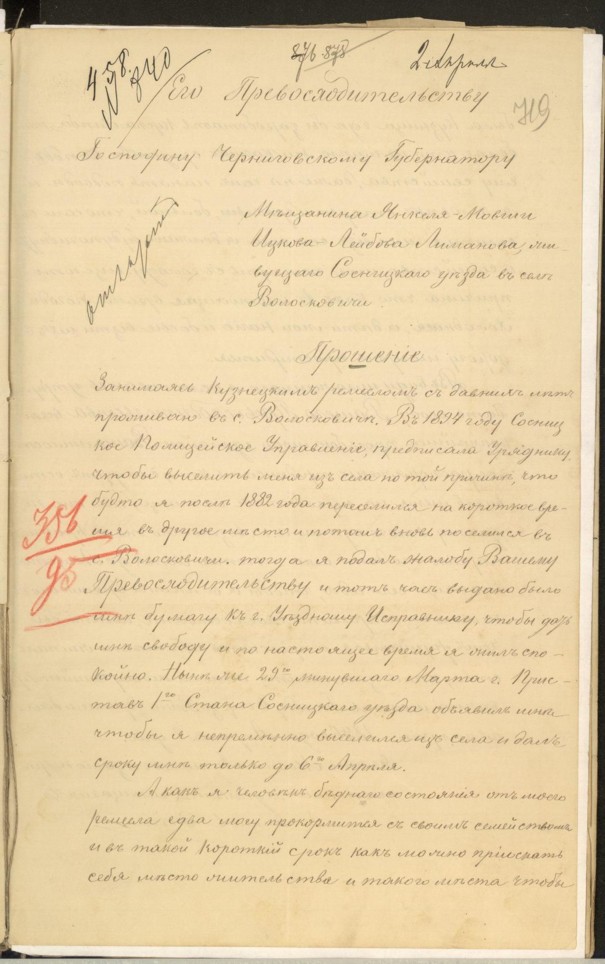 458.
№ 840
876 878
2 Апреля
719
Его Превосходительству
Господину Черниговскому Губернатору
Мещанина Янкеля-Мовши
Ицкова-Лейбова Лиманова, жи-
вущаго Сосницкаго уезда въ селе
Волосковичи.
Прошеніе
Занимаясь Кузнецкимъ ремесломъ съ давнихъ летъ
проживаю въ с. Волосковичи. Въ 1894 году Сосниц
кое Полицейское Управленіе, предписала Уряднику
чтобы выселить меня изъ села по той причине, что
будто я после 1882 года переселился на короткое вре-
мя въ другое место и потомъ вновь поселился въ
с. Волосковичи. тогда я подалъ жалобу Вашему
Превосходительству и тотъ часъ выдано было
мне бумагу къ г. Уездному Исправнику, чтобы дать
мне свободу и по настоящее время я жилъ спо-
койно. Ныне же 29го минувшаго Марта г. Прис-
тавъ 1го Стана Сосницкаго уезда объявилъ мне
чтобы я непременно выселился изъ села и далъ
сроку мне только до 6го Апреля.
А какъ я человекъ беднаго состоянія отъ моего
ремесла едва могу прокормится съ своимъ семействомъ
и въ такой короткій срокъ какъ можно пріискать
себя место жительства и такого места чтобы
356
95